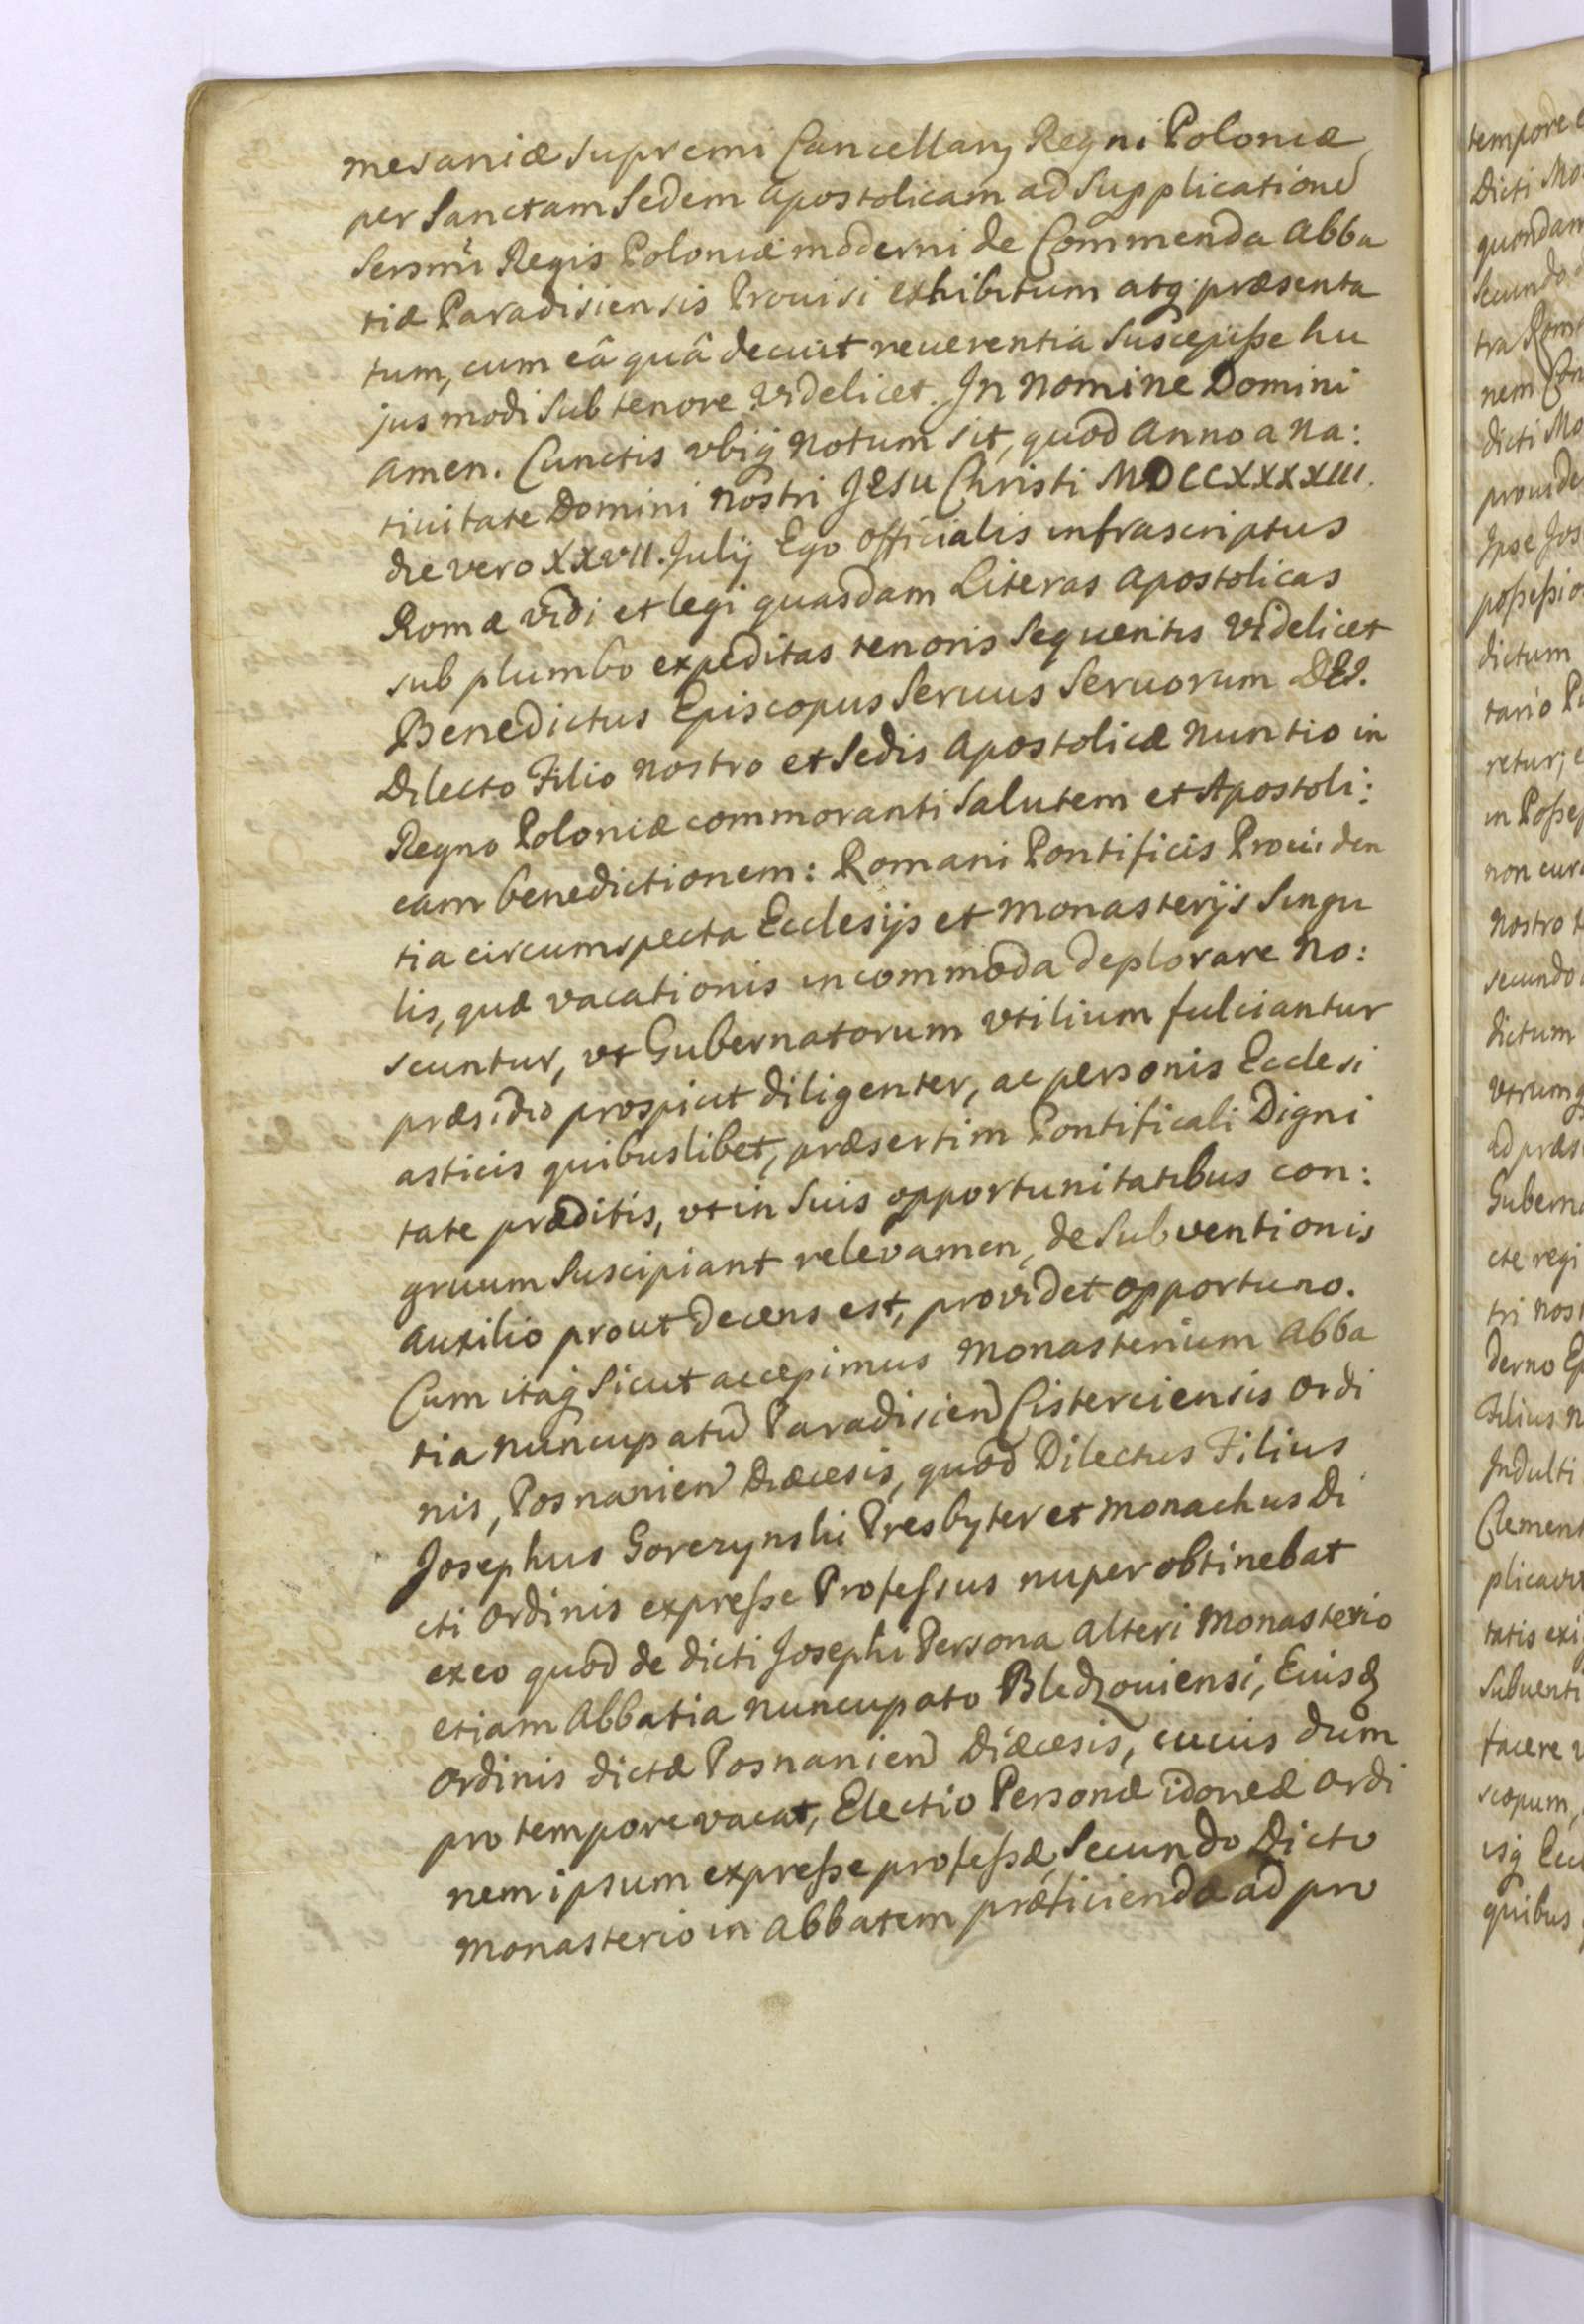 mesaniæ supremi Cancellarij Regni Poloniæ
per Sanctam Sedem Apostolicam ad Supplicatione͂
Sersmi Regis Poloniæ moderni de Commenda Abba
tiæ Paradisiensis Provisi exhibitum atq præsenta
tum, cum eâ quâ decuit reverentia Suscepiſse hu
jusmodi Sub tenore videlicet. In Nomine Domini
Amen. Cunctis vbiq Notum sit, quod Anno a Na:
tiuitate Domini Nostri Jesu Christi MDCCXXXXIII.
die vero XXVII. Julij Ego Officialis infrascriptus
Romæ vidi et legi quasdam Literas Apostolicas
sub plumbo expeditas tenoris Sequentis videlicet
Benedictus Episcopus Seruus Seruorum DEI.
Dilecto Filio Nostro et Sedis Apostolicæ Nuntio in
Regno Poloniæ commoranti Salutem et Apostoli:
cam benedictionem: Romani Pontificis Prouiden
tia circumspecta Ecclesijs et Monasterijs Singu
lis, quæ vacationis incommoda deplorare No:
scuntur, vt Gubernatorum vtilium fulciantur
præsidio prospicit diligenter, ac personis Ecclesi
asticis quibuslibet, præsertim Pontificali Digni
tate præditis, vt in Suis opportunitatibus con:
gruum Suscipiant relevamen, de Subventionis
Auxilio prout decens est, providet opportuno.
Cum itaq Sicut accepimus Monasterium Abba
tia nuncupatu͂ Paradisien͂ Cisterciensis Ordi
nis, Posnanien͂ Diæcesis, quod Dilectus Filius
Josephus Gorczynski Presbyter et Monachus Di
cti Ordinis expreſse Profeſsus nuper obtinebat
ex eo quod de dicti Josephi Persona Alteri Monasterio
etiam Abbatia nuncupato Bledzouiensi, Eiusd
Ordinis dictæ Posnanien͂ Diæcesis, cuius dum
pro tempore vacat, Electio Personæ idoneæ Ordi
nem ipsum expreſse profeſsæ, Secundo Dicto
Monasterio in Abbatem præficiendæ ad pro